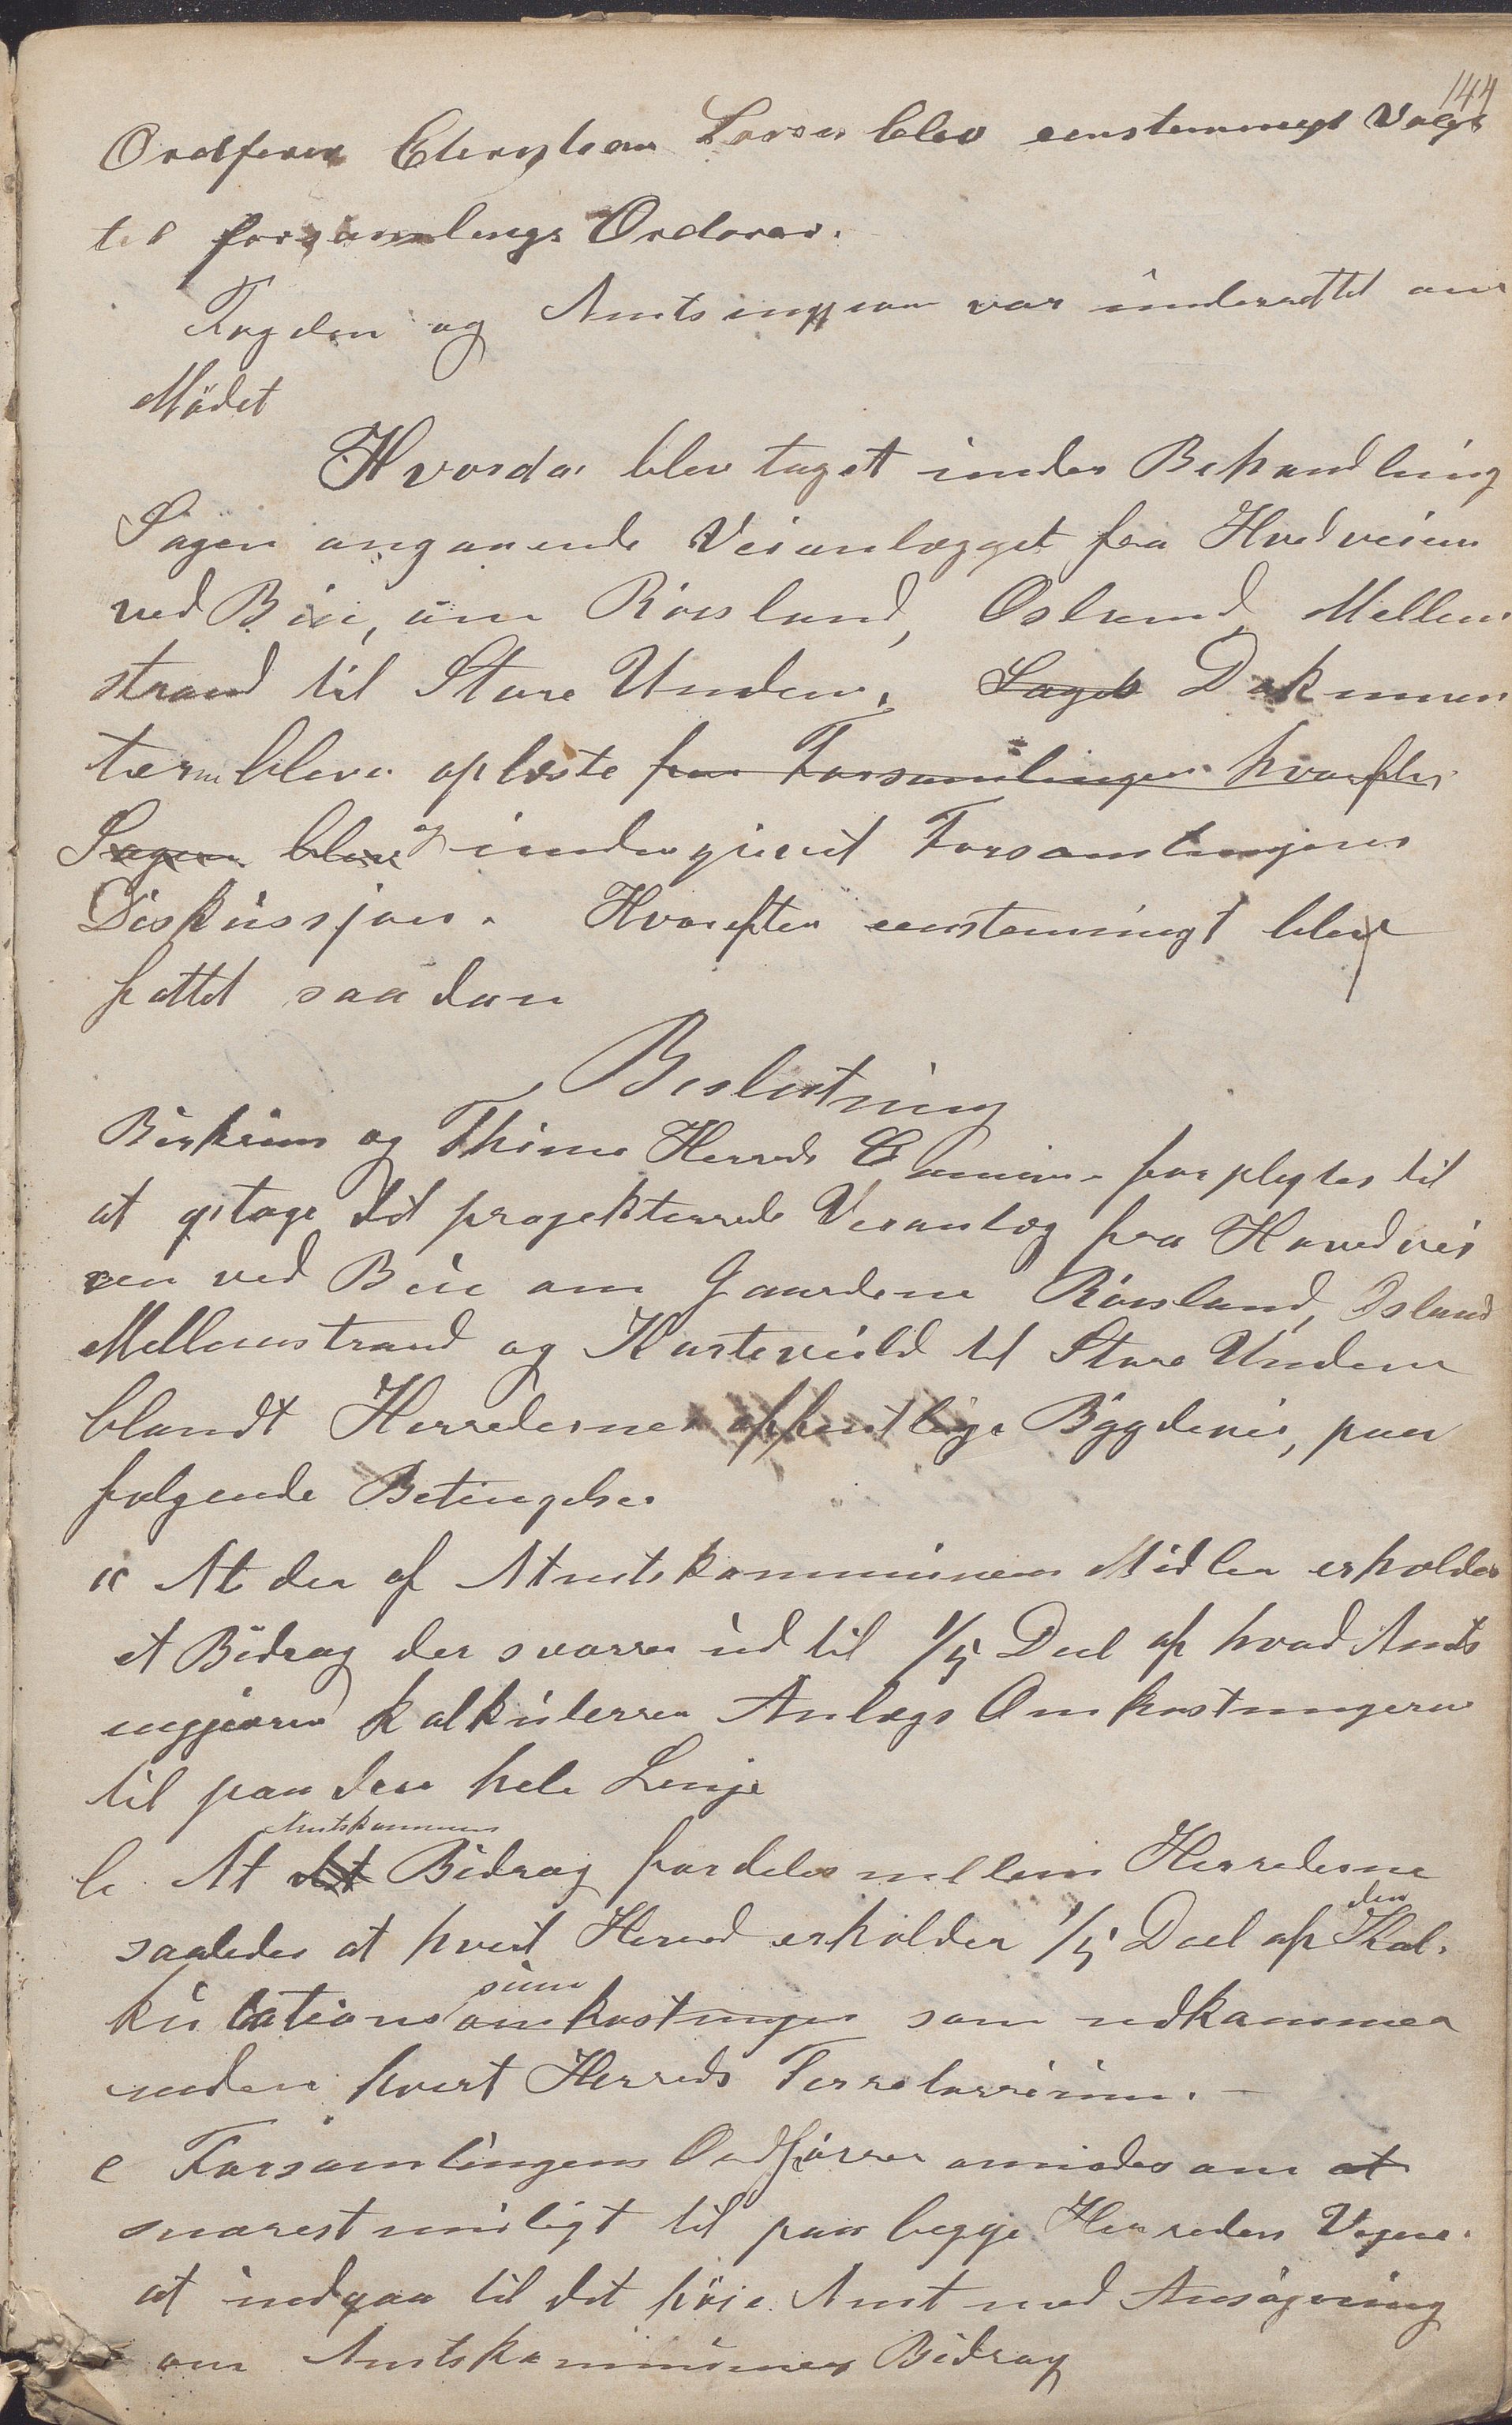 144
Ordfører Larsen blev eenstemmigt Valgt
til forsamlings Ordfører.
Fogden og Amtsingeniør var underrettet om
Mödet
Hvorda blev taget under Behandling
Sagen angaaende Veianlægget fra Hovdveien
ved Bue, om Røisland, Osland Mellem
strand til Store Undem. Saged Dokumen
tern bleve oplæste for Forsamlingen hvorefter
Sagen blev og undergivet Forsamlingens
Diskussjon. Hvorefter eenstemmigt blev
fattet saadan
Beslutning
Birkrem og Thime Herreds Commune forpligtes til
at optage det projekterede Veianlæg fra Hovedvei
en ved Bue om Gaardene Røisland, Osland
Mellemstrand og til Store Undem
blandt Herrederne offentlige Bygdevei, paa
følgende Betingelser
a At der af Amtskommunens Midler erholdes
et Bidrag der svarer ud til 1/5 Deel af hvad Amts
ingeniøren kalkulerer Anlægs Omkostningerne
til paa den hele Linje
b. At det Amtskommunes Bidrag fordeles mellem Herrederne
saaledes at hvert Herred erholder 1/5 Deel af den Kal-
kulations omkostninger sum som udkommer
inden hvert Herreds Territorrium. -
c Forsamlingens Ordfører anmodes om at
snarest muligt til paa begge Herreders Vegne
at indgaa til det höie Amt med Ansøgning
om Amtskommunes Bidrag